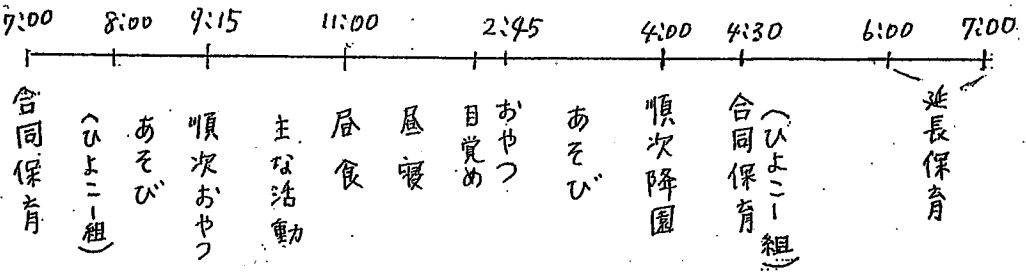 7:00
8:00
9:15
11:00
2:45
4:00
4:30
6:00
7:00
合同保育
(ひよこ一組)
あそび
順次おやつ
主な活動
昼食
昼寝
目覚め
おやつ
あそび
順次降園
合同保育
(ひよこ一組)
延長保育